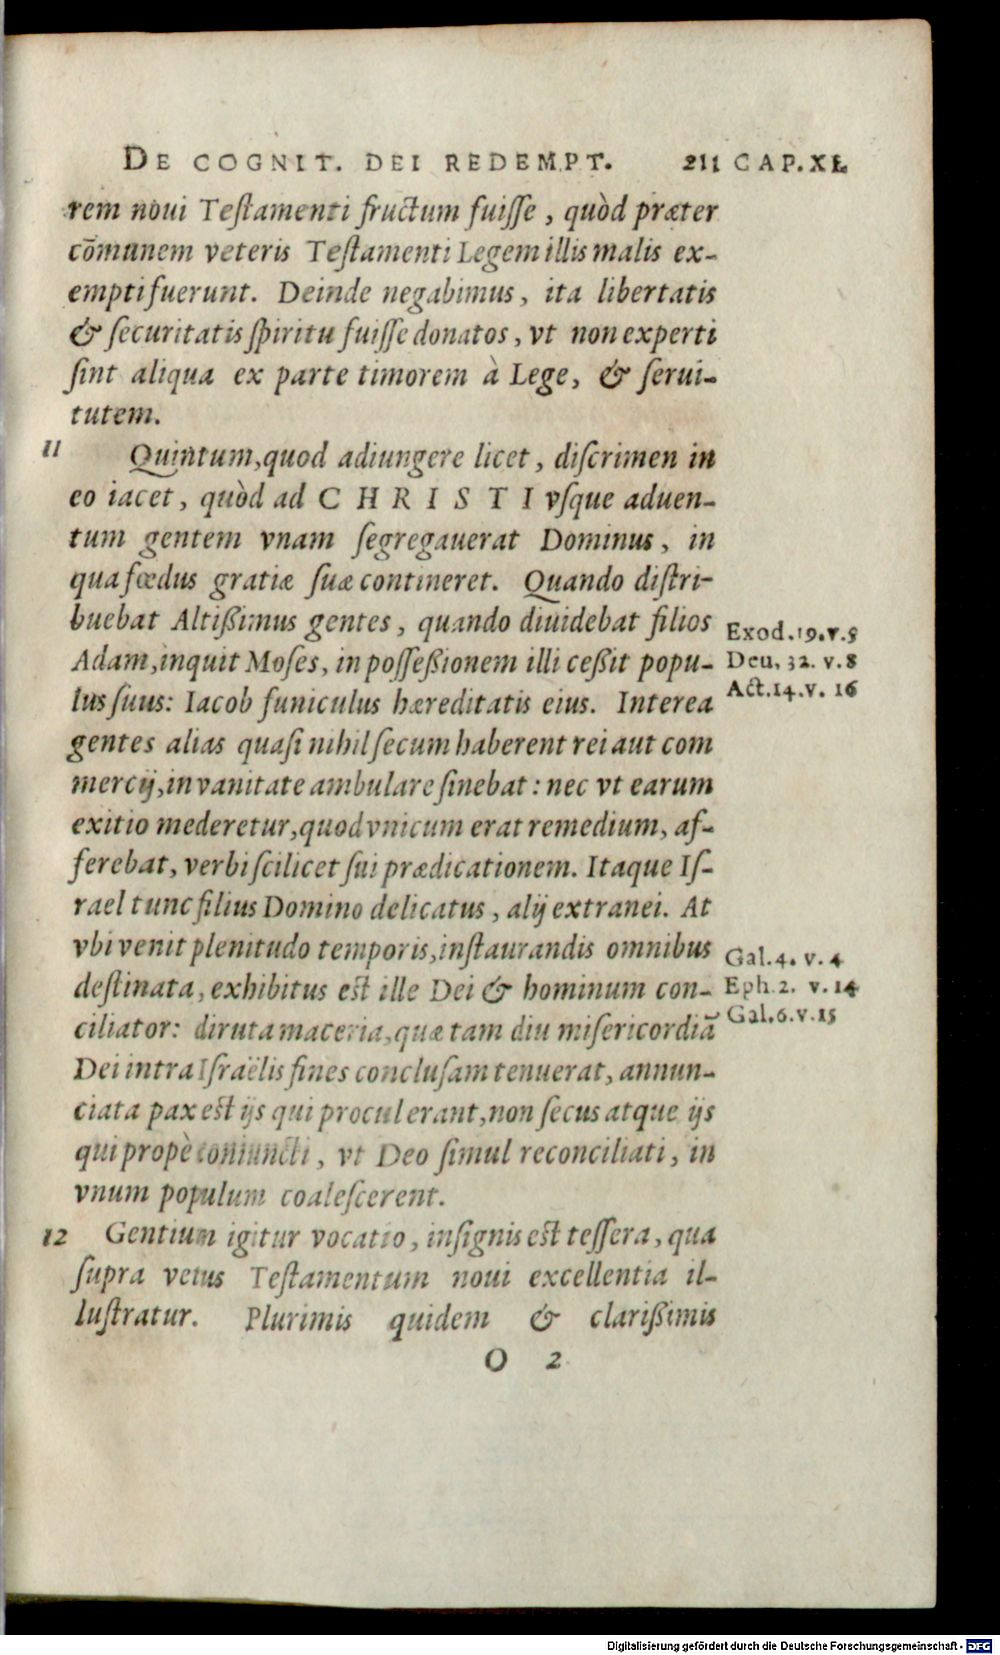 DE COGNIT. DEI REDEMPT. 211 CAP. XI.
rem noui Teſtamenti fructum fuiſſe, quòd præter
cōmunem veteris Teſtamenti Legem illis malis ex-
empti fuerunt. Deinde negabimus, ita libertatis
& ſecuritatis ſpiritu fuiſſe donatos, vt non experti
ſint aliqua ex parte timorem à Lege, & ſerui-
tutem.
11 Quintum, quod adiungere licet, diſcrimen in
eo iacet, quòd ad CHRISTI vſque aduen-
tum gentem vnam ſegregauerat Dominus, in
qua fœdus gratiæ ſuæ contineret. Quando diſtri-
buebat Altißimus gentes, quando diuidebat filios
Exod. 19. v. 5
Adam, inquit Moſes, in poſſeßionem illi ceßit popu-
Deu. 32. v. 8
lus ſuus: Iacob funiculus hæreditatis eius. Interea
Act. 14. v. 16
gentes alias quaſi nihil ſecum haberent rei aut com
mercij, in vanitate ambulare ſinebat: nec vt earum
exitio mederetur, quod vnicum erat remedium, af-
ferebat, verbi ſcilicet ſui prædicationem. Itaque Iſ-
rael tunc filius Domino delicatus, alij extranei. At
vbi venit plenitudo temporis, inſtaurandis omnibus
Gal. 4. v. 4
deſtinata, exhibitus eſt ille Dei & hominum con-
Eph. 2. v. 14
ciliator: diruta maceria, quæ tam diu miſericordiā
Gal. 6. v. 15
Dei intra Iſraëlis fines concluſam tenuerat, annun-
ciata pax eſt ijs qui procul erant, non ſecus atque ijs
qui propè coniuncti, vt Deo ſimul reconciliati, in
vnum populum coaleſcerent.
12 Gentium igitur vocatio, inſignis eſt teſſera, qua
ſupra vetus Teſtamentum noui excellentia il-
luſtratur. Plurimis quidem & clarißimis
O 2
Digitalisierung gefördert durch die Deutsche Forschungsgemeinschaft - DFG